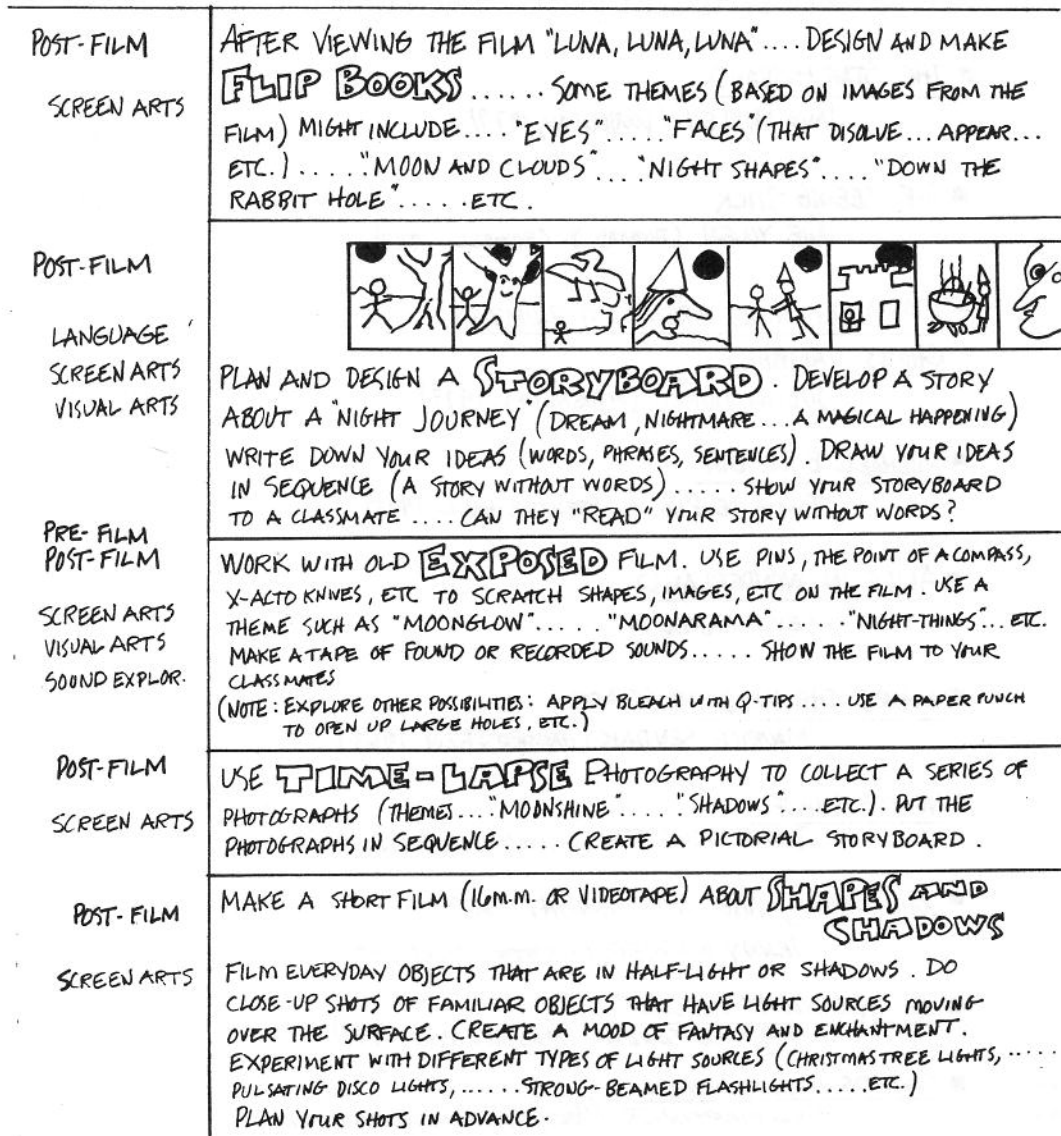 POST-FILM
SCREEN ARTS
AFTER VIEWING THE FILM "LUNA, LUNA, LUNA".... DESIGN AND MAKE
FLIP BOOKS ...... SOME THEMES (BASED ON IMAGES FROM THE
FILM) MIGHT INCLUDE.... "EYES"...... "FACES" (THAT DISOLVE... APPEAR...
ETC.)..... "MOON AND CLOUDS"..... "NIGHT SHAPES".... "DOWN THE
RABBIT HOLE"..... ETC.
POST-FILM
LANGUAGE
SCREEN ARTS
VISUAL ARTS
PLAN AND DESIGN A STORYBOARD. DEVELOP A STORY
ABOUT A "NIGHT JOURNEY" (DREAM, NIGHTMARE... A MAGICAL HAPPENING)
WRITE DOWN YOUR IDEAS (WORDS, PHRASES, SENTENCES). DRAW YOUR IDEAS
IN SEQUENCE (A STORY WITHOUT WORDS)..... SHOW YOUR STORYBOARD
TO A CLASSMATE .... CAN THEY "READ" YOUR STORY WITHOUT WORDS?
PRE-FILM
POST-FILM
SCREEN ARTS
VISUAL ARTS
SOUND EXPLOR.
WORK WITH OLD EXPOSED FILM. USE PINS, THE POINT OF A COMPASS,
X-ACTO KNIVES, ETC TO SCRATCH SHAPES, IMAGES, ETC ON THE FILM. USE A
THEME SUCH AS "MOONGLOW"..... "MOONARAMA"..... "NIGHT-THINGS"... ETC.
MAKE A TAPE OF FOUND OR RECORDED SOUNDS..... SHOW THE FILM TO YOUR
CLASSMATES
(NOTE: EXPLORE OTHER POSSIBILITIES: APPLY BLEACH WITH Q-TIPS .... USE A PAPER PUNCH
TO OPEN UP LARGE HOLES, ETC.)
POST-FILM
SCREEN ARTS
USE TIME-LAPSE PHOTOGRAPHY TO COLLECT A SERIES OF
PHOTOGRAPHS (THEMES...."MOONSHINE"....."SHADOWS"....ETC.). PUT THE
PHOTOGRAPHS IN SEQUENCE..... CREATE A PICTORIAL STORYBOARD.
POST-FILM
SCREEN ARTS
MAKE A SHORT FILM (16m.m. OR VIDEOTAPE) ABOUT SHAPES AND
SHADOWS
FILM EVERYDAY OBJECTS THAT ARE IN HALF-LIGHT OR SHADOWS. DO
CLOSE-UP SHOTS OF FAMILIAR OBJECTS THAT HAVE LIGHT SOURCES MOVING
OVER THE SURFACE. CREATE A MOOD OF FANTASY AND ENCHANTMENT.
EXPERIMENT WITH DIFFERENT TYPES OF LIGHT SOURCES (CHRISTMAS TREE LIGHTS,.....
PULSATING DISCO LIGHTS,......STRONG-BEAMED FLASHLIGHTS.....ETC.)
PLAN YOUR SHOTS IN ADVANCE.